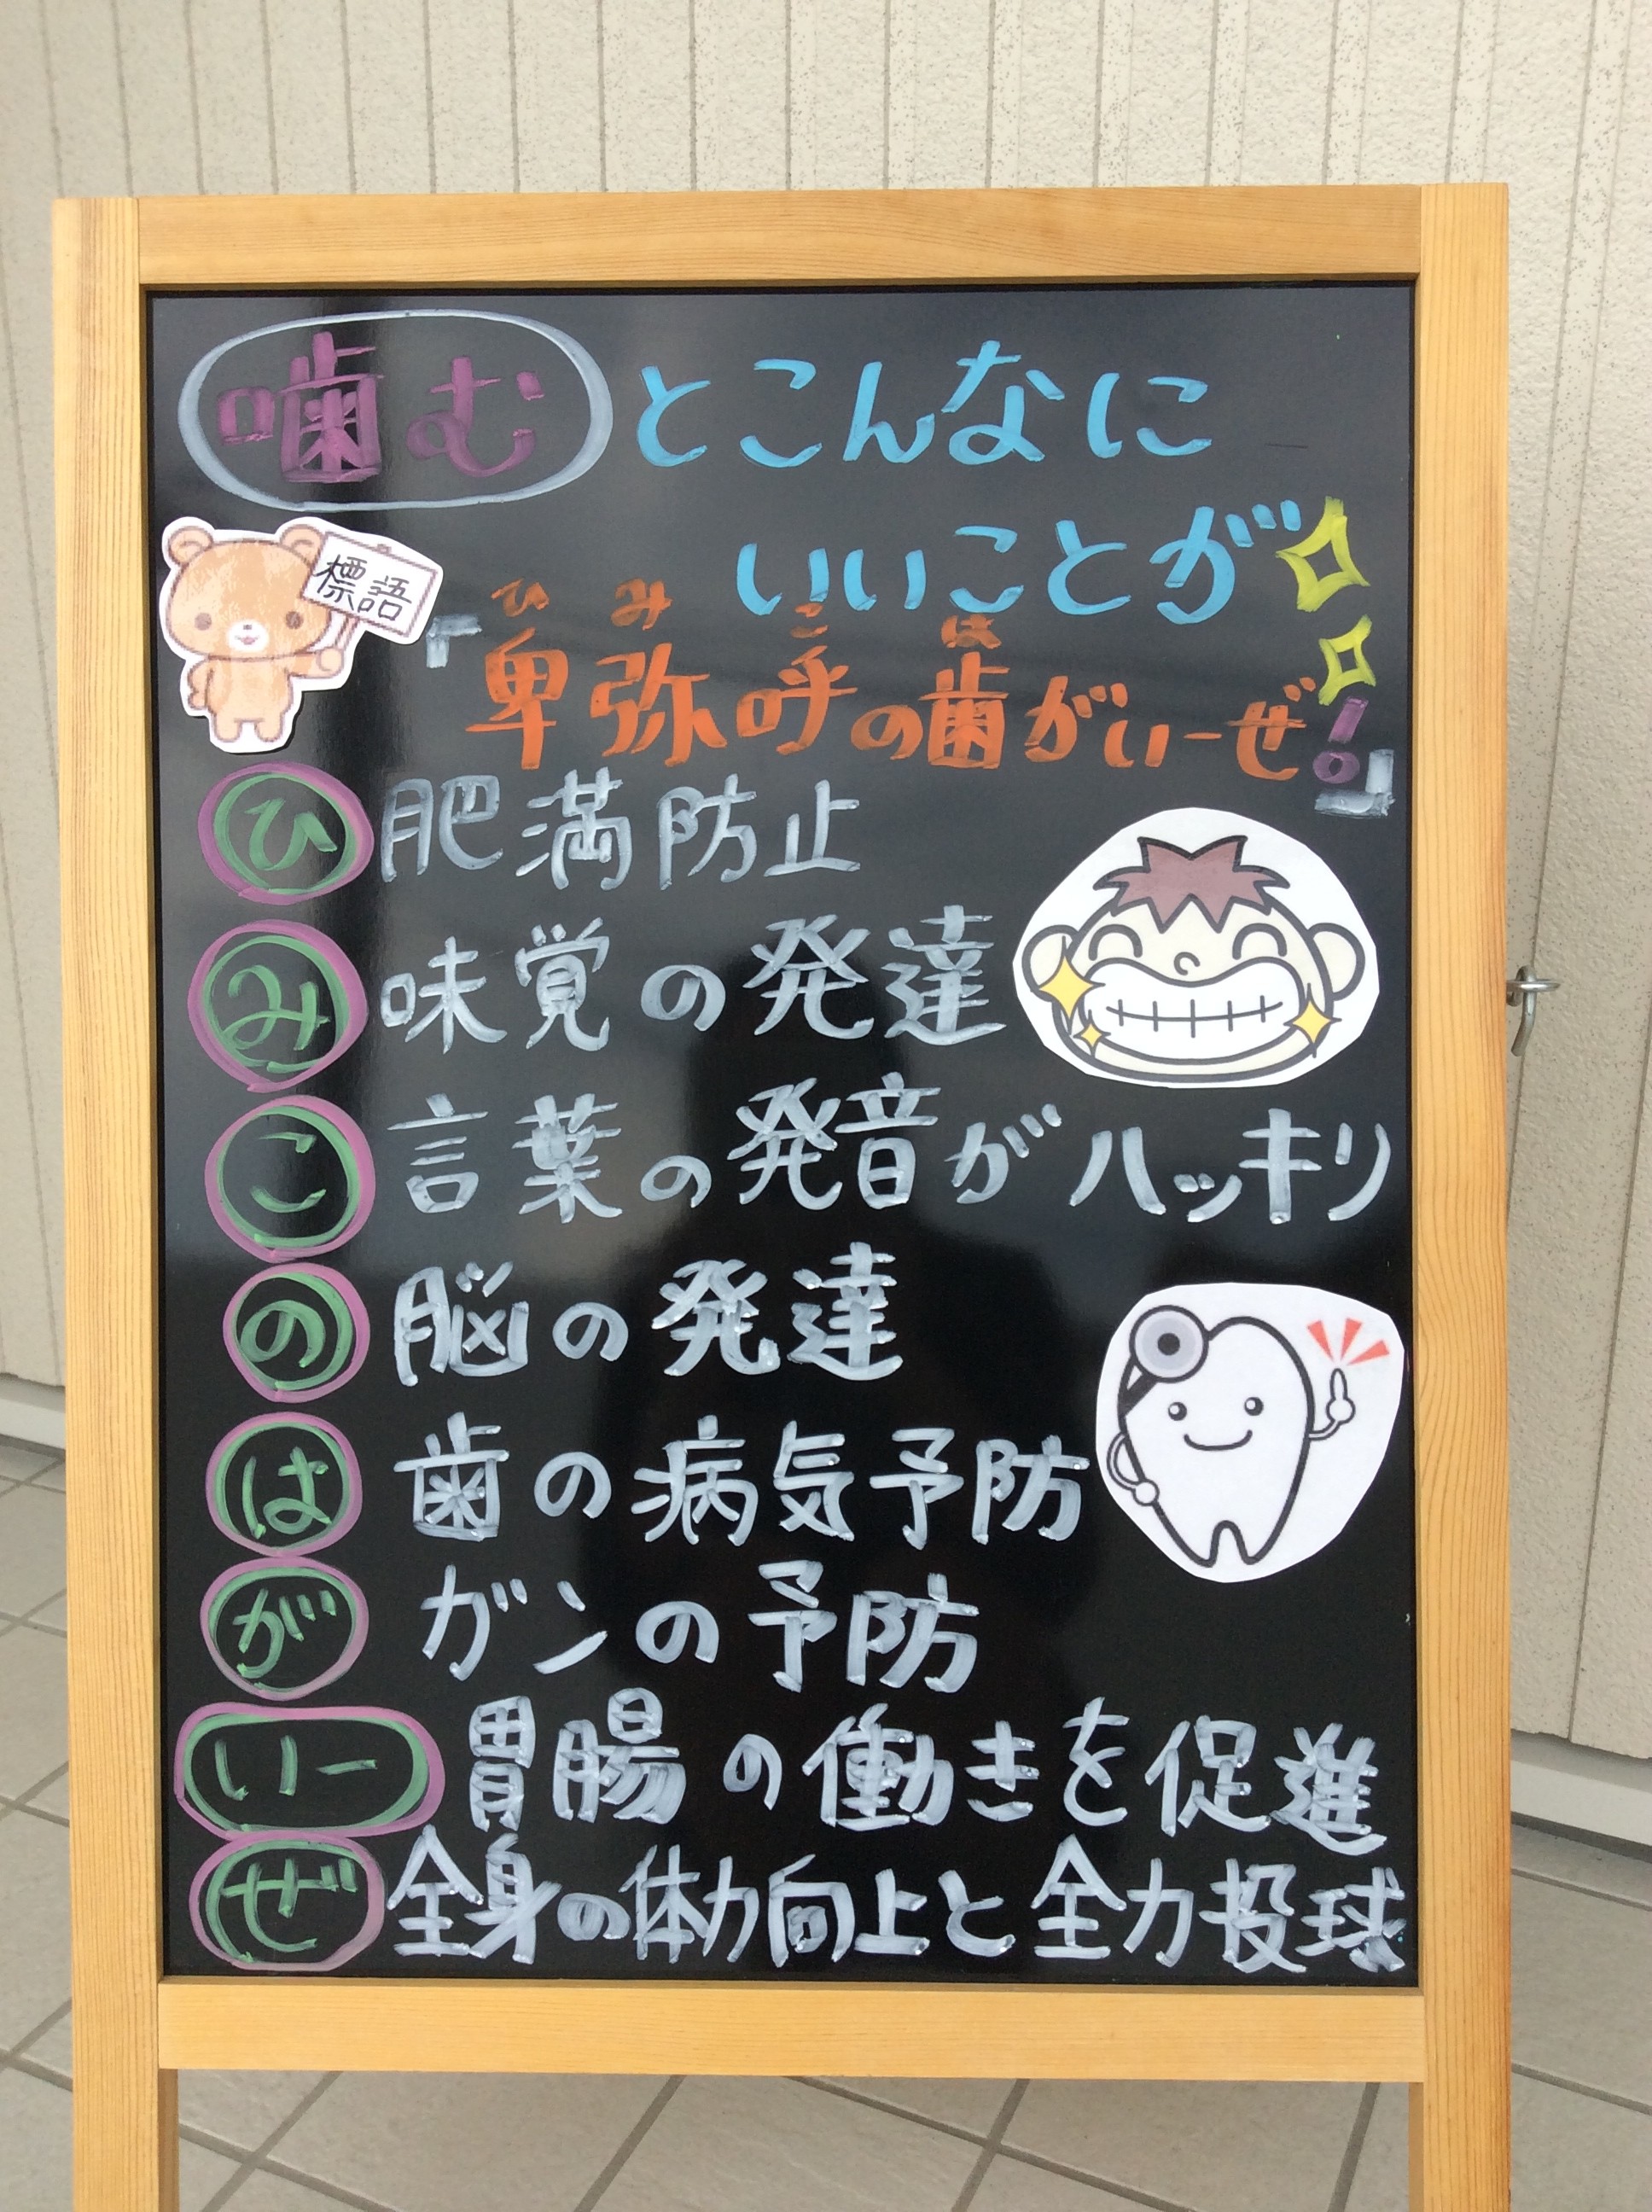 噛むとこんなに
いいことが
標語
ひみこ は
『卑弥呼の歯がいーぜ!』
ひ 肥満防止
み 味覚の発達
こ 言葉の発音がハッキリ
の 脳の発達
は 歯の病気予防
が ガンの予防
いー 胃腸の働きを促進
ぜ 全身の体力向上と全力投球